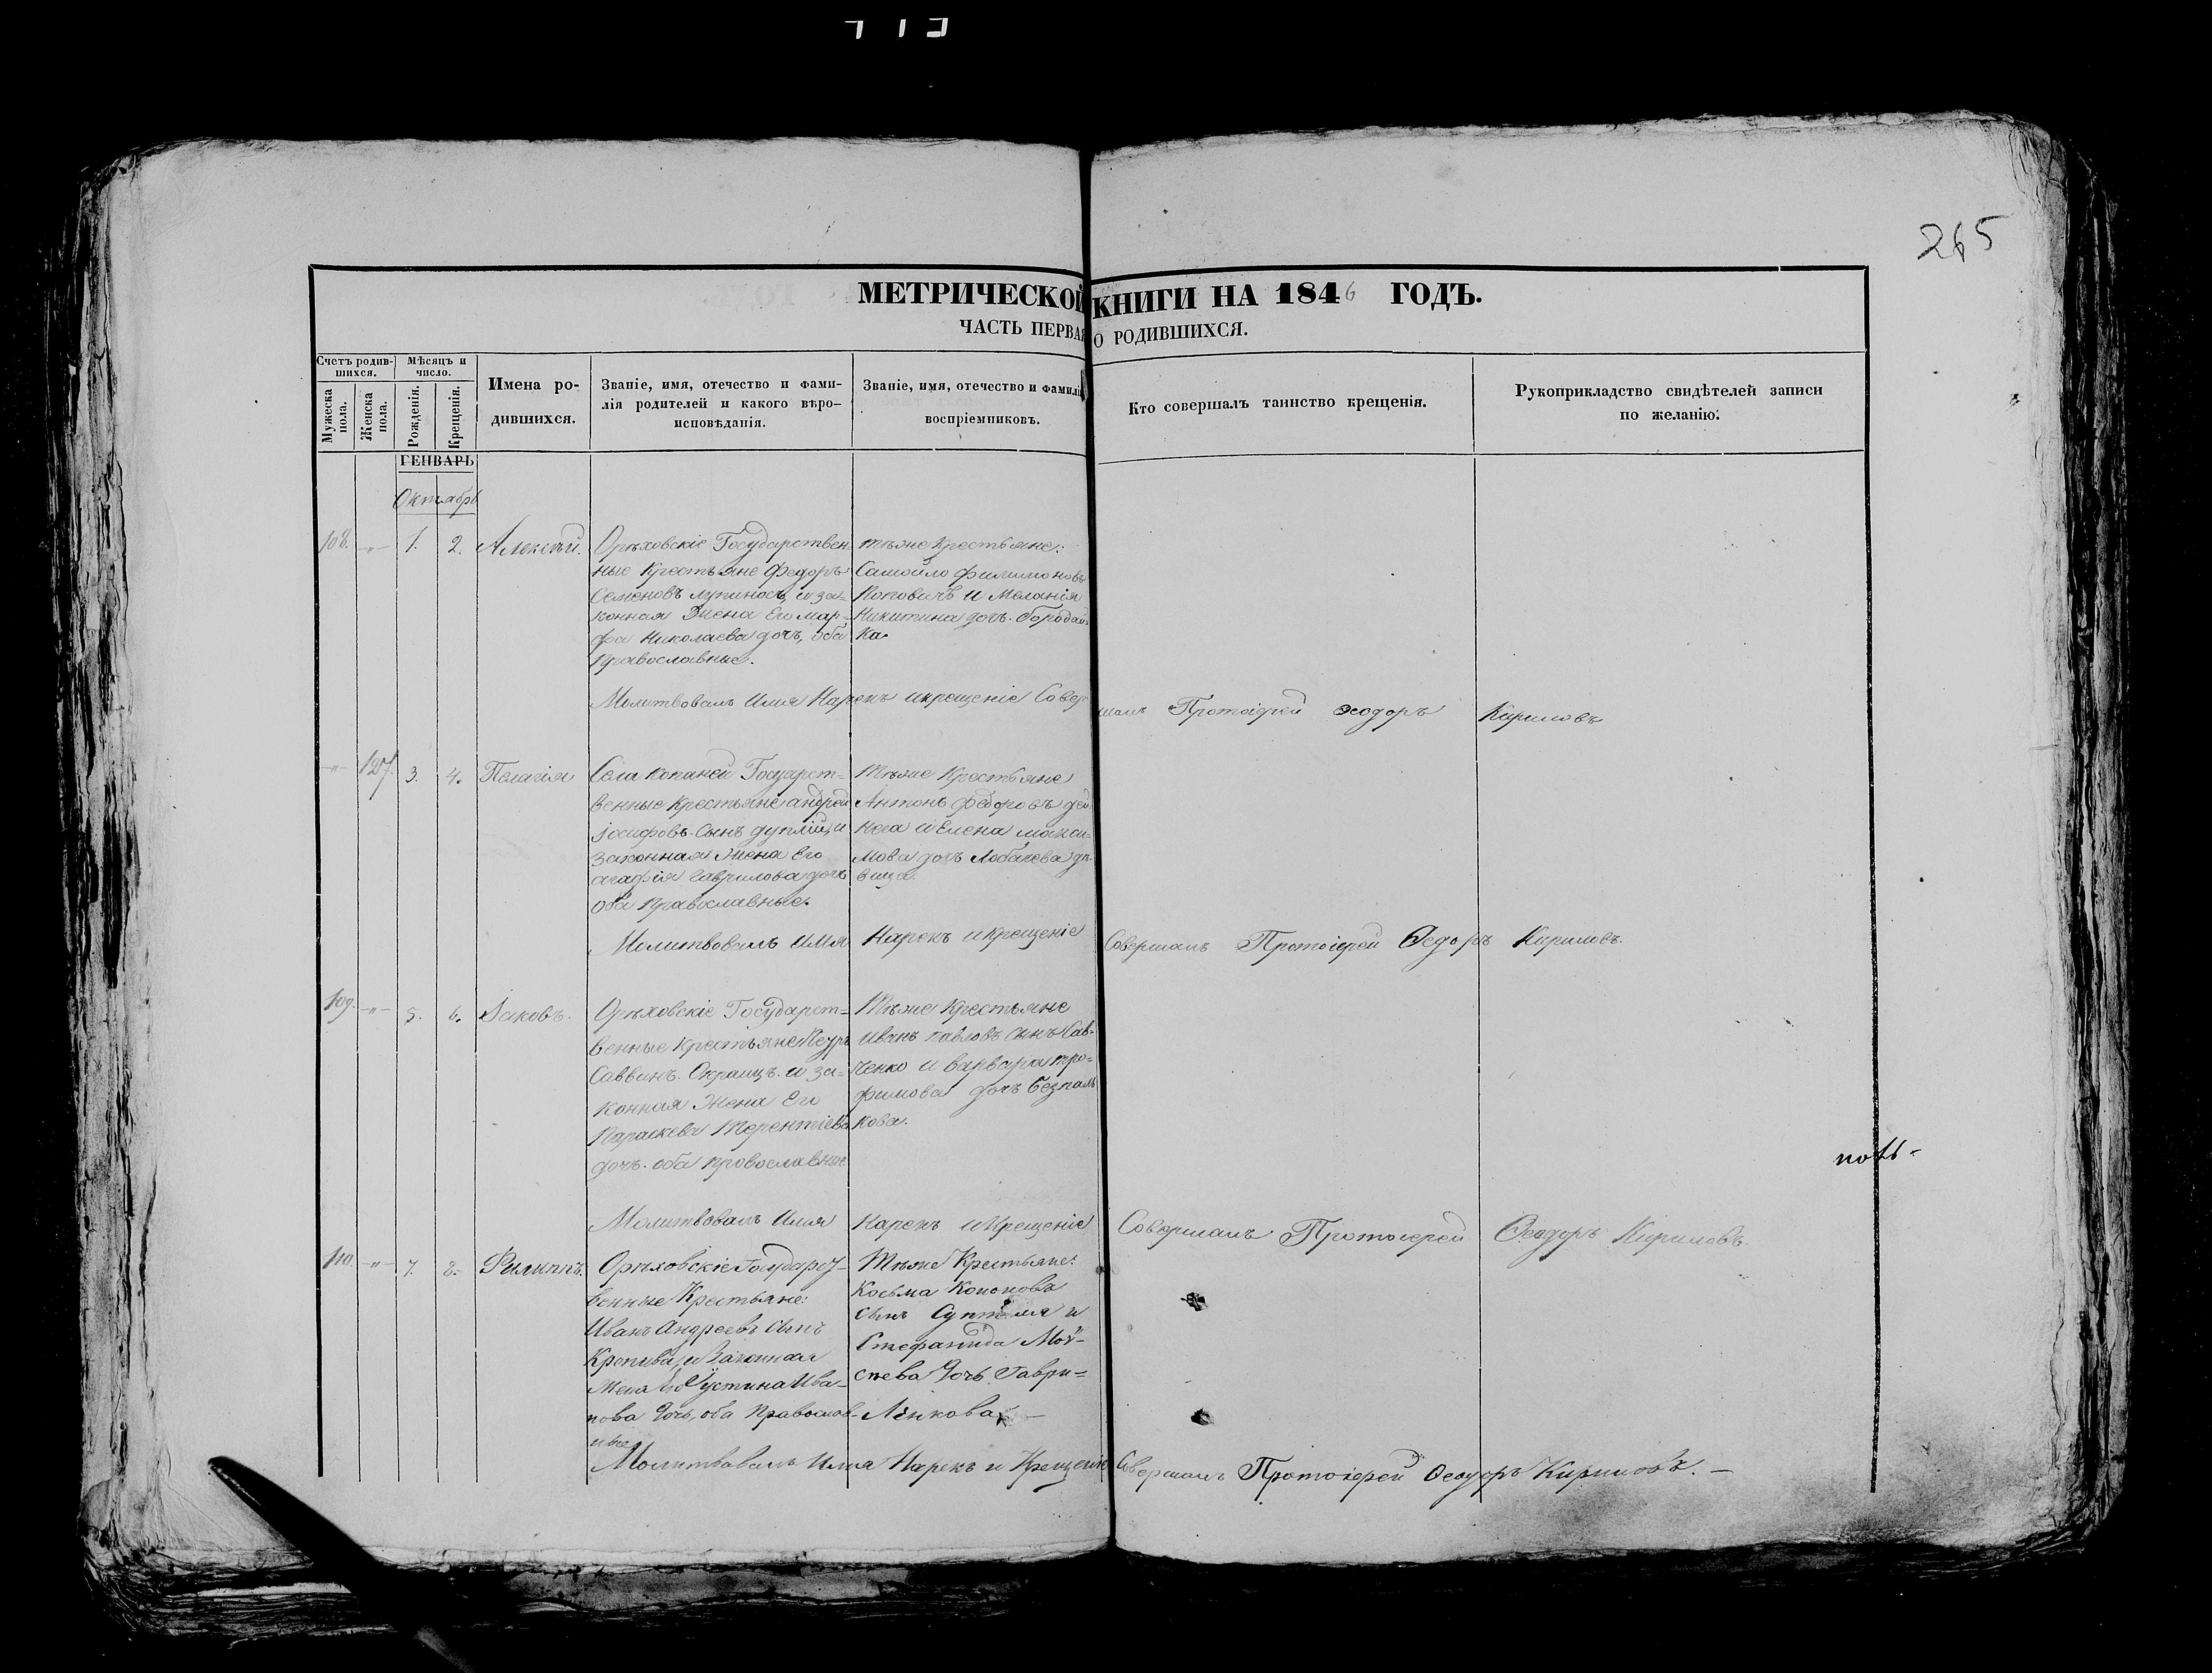 265
МЕТРИЧЕСКОЙ КНИГИ НА 1846 ГОДЪ.
ЧАСТЬ ПЕРВАЯ О РОДИВШИХСЯ.
Счетъ родив-
шихся.
Мѣсяцъ и
число.
Мужеска
пола.
Женска
пола.
Рожденія.
Крещенія.
Имена ро-
дившихся.
Званіе, имя, отечество и фами-
лія родителей и какого вѣро-
исповѣданія.
Званіе, имя, отечество и фамилія
воспріемниковъ.
Кто совершалъ таинство крещенія.
Рукоприкладство свидѣтелей записи
по желанію.
ГЕНВАРЬ
Октябрь
108. -"- 1. 2. Алексѣй.
Орѣховскіе Государствен
ные Крестьяне Федоръ
Семеновъ и за-
конная Жена Его Мар-
фа Николаева дочь, оба
Православные.
тѣже Крестьяне:
Самойло Филимоновъ
Поповичъ и Меланія
Никитина дочь Бородай-
ка.
Молитвовалъ Имя Нарекъ и крещеніе Совершалъ Протоіерей Феодоръ Кириловъ
-"- 107. 3. 4. Пелагія
Села Копаней Государст-
венные Крестьяне Андрей
Іосифовъ Сынъ и
Законная Жена Его
Агафія Гаврилова дочь
Оба Православные.
Тѣже Крестьяне
Антонъ Федоровъ
и Елена Макси-
мова дочь Лобачева дѣ-
вица.
Молитвовалъ Имя Нарекъ и Крещеніе Совершалъ Протоіерей Ѳедоръ Кириловъ.
109. -"- 5. 6. Іаковъ.
Орѣховскіе Государст-
венные Крестьяне Петръ
Саввинъ и за-
конная Жена Его
Параскева Терентіева
дочь. оба православные
Тѣже Крестьяне
Иванъ Павловъ Сынъ Сав-
ченко и Варвара Тро-
фимова дочь Безпаль
кова.
Молитвовалъ Имя Нарекъ и Крещеніе Совершалъ Протоіерей Ѳеодоръ Кириловъ.
110. -"- 7. 8. Филиппъ.
Орѣховскіе Государст-
венные Крестьяне:
Иванъ Андреевъ Сынъ
Кропива, и Законная
Жена Его Устина Ива-
нова дочь, оба Православ-
ные
Тѣже Крестьяне:
Косьма Кононовъ
сынъ и
Стефанида Мой-
сѣева дочь Гаври-
ленкова. —
Молитвовалъ Имя Нарекъ и Крещеніе Совершалъ Протоіерей Ѳеодоръ Кириловъ. —